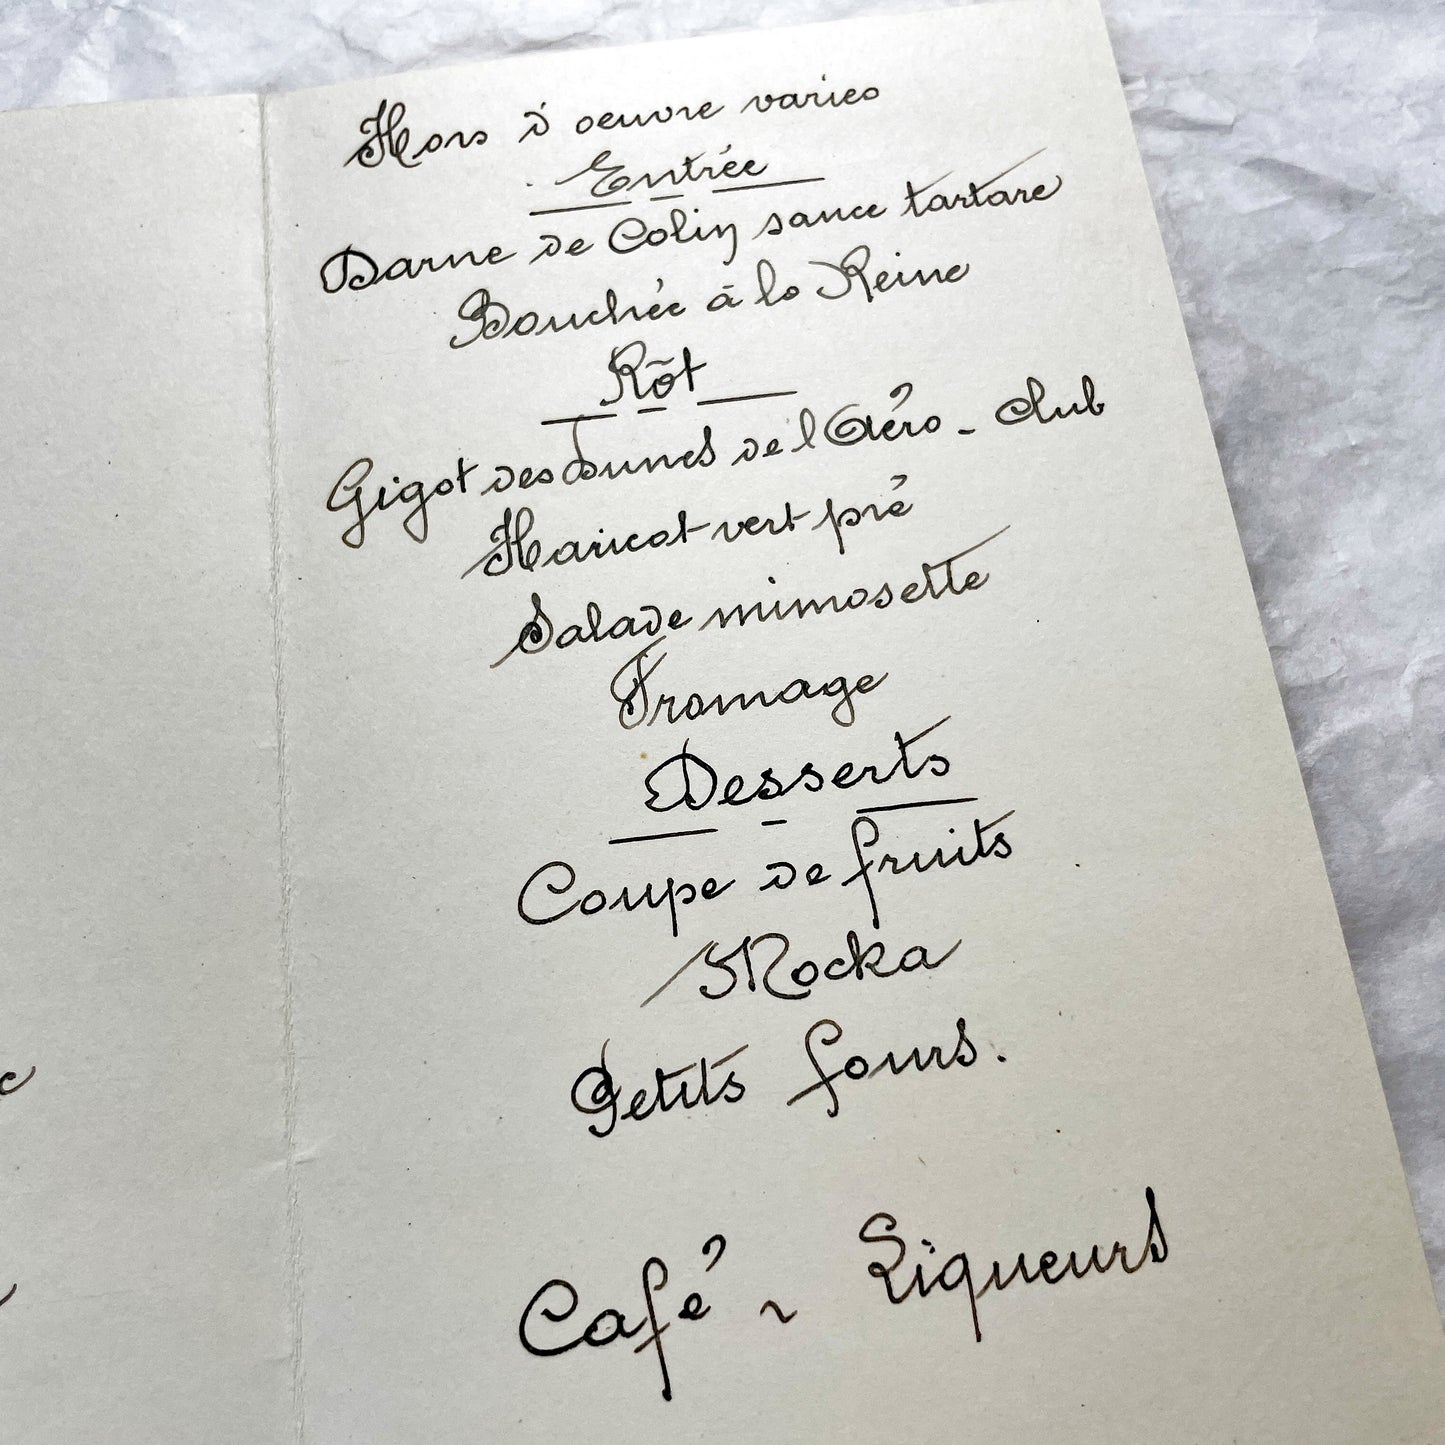 Hors d'oeuvre varies
Entrée
Darne de Colin sauce tartare
Bouchée à la Reine
Rôt
Gigot des Dunes de l'Aéro-Club
Haricot vert pré
Salade mimosette
Fromage
Desserts
Coupe de fruits
Mocka
Petits fours.
Café, Liqueurs